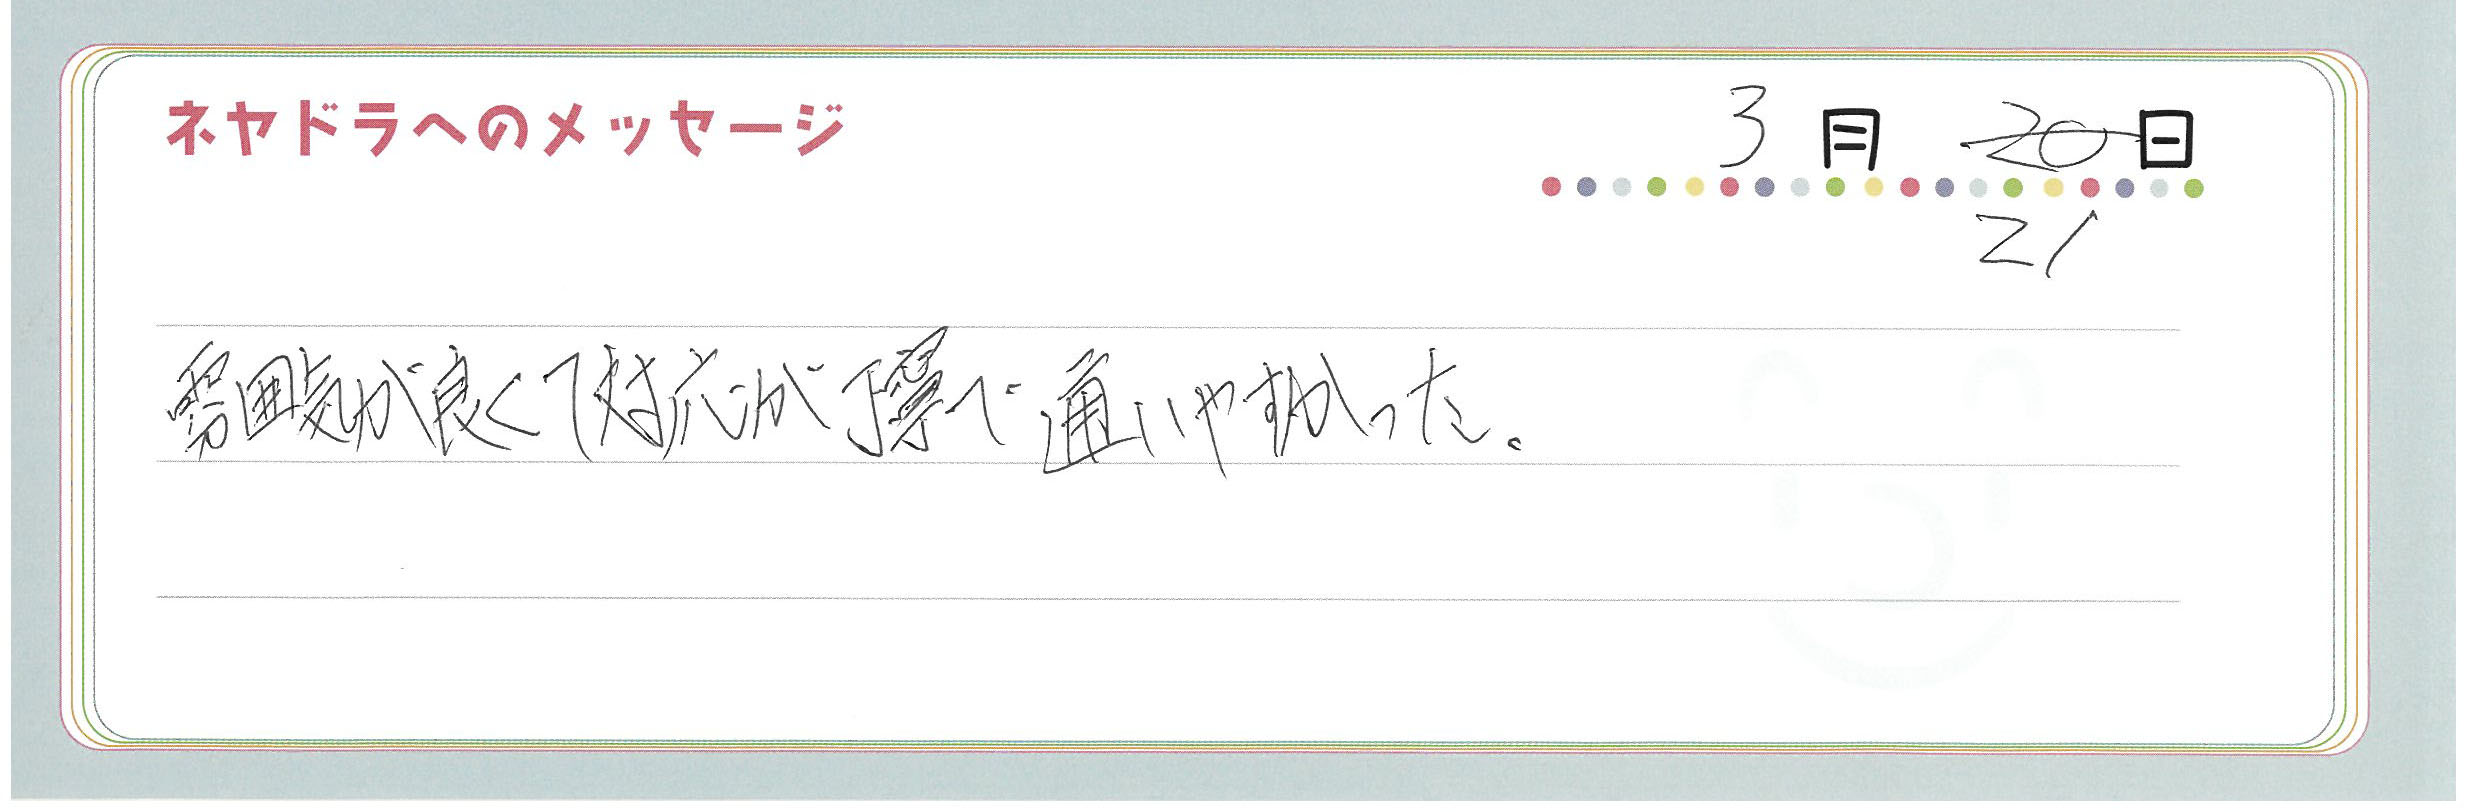 ネヤドラへのメッセージ
3月 20日
21
雰囲気が良くて対応が丁寧で通いやすかった。